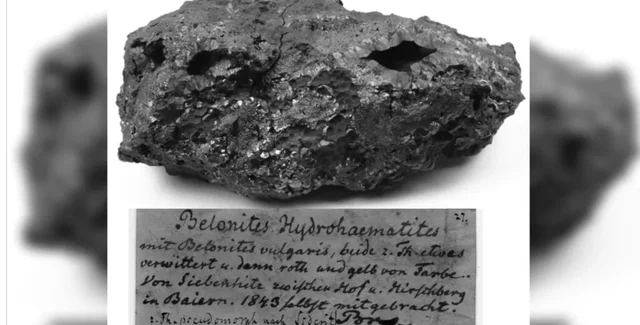 27.
Belonites Hydrohaematites
mit Belonites vulgaris, beide z. Th. etwas
verwittert u. dann roth und gelb von Farbe.
Von Siebenhitz zwischen Hof u. Hirschberg
in Baiern. 1843 selbst mitgebracht.
z. Th. pseudomorph nach